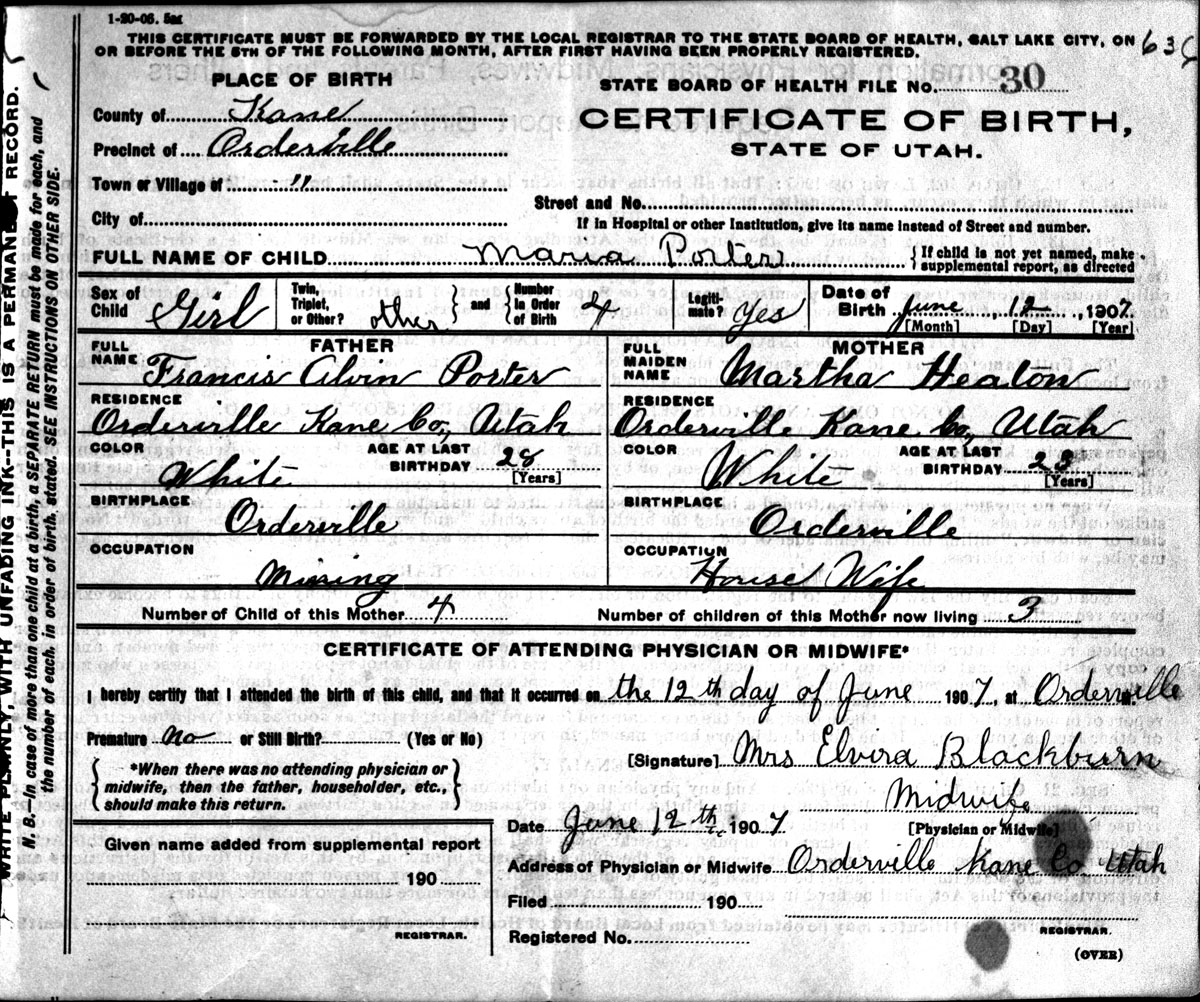 1-20-06. 5m
THIS CERTIFICATE MUST BE FORWARDED BY THE LOCAL REGISTRAR TO THE STATE BOARD OF HEALTH, SALT LAKE CITY, ON
OR BEFORE THE 5TH OF THE FOLLOWING MONTH, AFTER FIRST HAVING BEEN PROPERLY REGISTERED.
PLACE OF BIRTH
STATE BOARD OF HEALTH FILE NO. 30
County of Kane
CERTIFICATE OF BIRTH,
Precinct of Orderville
STATE OF UTAH.
Town or Village of "
Street and No.
City of
If in Hospital or other Institution, give its name instead of Street and number.
FULL NAME OF CHILD Maria Porter { If child is not yet named, make
supplemental report, as directed
Sex of Child Girl
Twin, Triplet, or Other? other } and { Number in Order of Birth 4
Legiti-mate? Yes
Date of Birth June, 12, 1907.
[Month] [Day] [Year]
FATHER
FULL NAME Francis Alvin Porter
MOTHER
FULL MAIDEN NAME Martha Heaton
RESIDENCE
Orderville Kane Co., Utah
RESIDENCE
Orderville Kane Co., Utah
COLOR White AGE AT LAST BIRTHDAY 28 [Years]
COLOR White AGE AT LAST BIRTHDAY 28 [Years]
BIRTHPLACE
Orderville
BIRTHPLACE
Orderville
OCCUPATION
Mining
OCCUPATION
House Wife
Number of Child of this Mother 4 Number of children of this Mother now living 3
CERTIFICATE OF ATTENDING PHYSICIAN OR MIDWIFE*
I hereby certify that I attended the birth of this child, and that it occurred on the 12th day of June 1907, at Orderville M.
Premature no or Still Birth? (Yes or No)
[Signature] Mrs Elvira Blackburn
{ *When there was no attending physician or
midwife, then the father, householder, etc.,
should make this return. }
Midwife
[Physician or Midwife]
Date June 12th 1907
Given name added from supplemental report
190
REGISTRAR.
Address of Physician or Midwife Orderville Kane Co Utah
Filed 190
REGISTRAR.
Registered No.
(OVER)
WRITE PLAINLY, WITH UNFADING INK--THIS IS A PERMANENT RECORD.
N. B. In case of more than one child at a birth, a SEPARATE RETURN must be made for each, and
the number of each, in order of birth, stated. SEE INSTRUCTIONS ON OTHER SIDE.